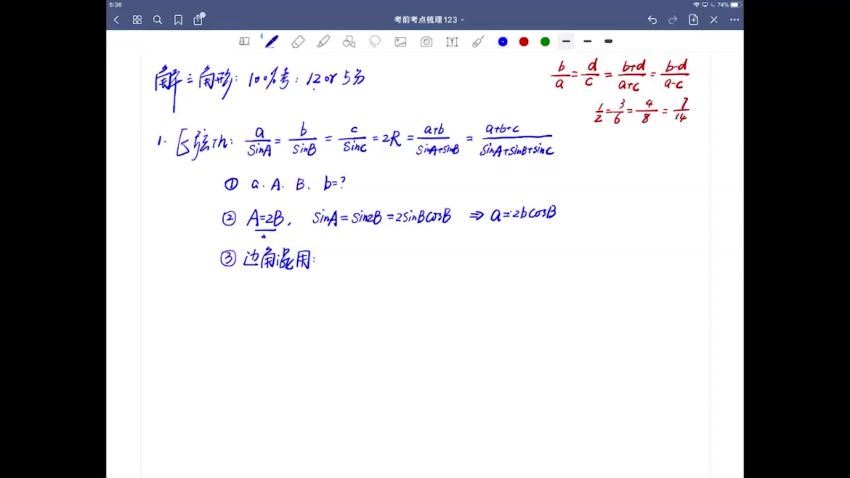 5:36
74%
考前考点梳理123
解三角形: 100%考: 12 or 5分
b/a = d/c = b+d/a+c = b-d/a-c
1/2 = 3/6 = 4/8 = 7/14
1. 正弦Th: a/sinA = b/sinB = c/sinC = 2R = a+b/sinA+sinB = a+b+c/sinA+sinB+sinC
① a. A. B. b=?
② A=2B, sinA=sin2B=2sinBcosB ⇒ a=2bcosB
③ 边角混用: